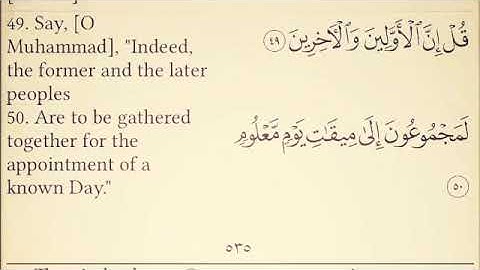 49. Say, [O
Muhammad], "Indeed,
the former and the later
peoples
قُلۡ إِنَّ ٱلۡأَوَّلِينَ وَٱلۡأٓخِرِينَ ٤٩
50. Are to be gathered
together for the
appointment of a
known Day."
لَمَجۡمُوعُونَ إِلَىٰ مِيقَٰتِ يَوۡمٖ مَّعۡلُومٖ ٥٠
٥٣٥